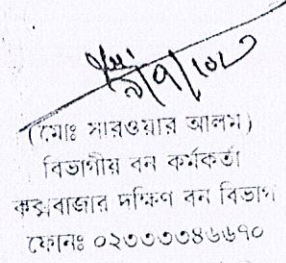 (মোঃ সারওয়ার আলম)
বিভাগীয় বন কর্মকর্তা
কক্সবাজার দক্ষিণ বন বিভাগ
ফোনঃ ০২৩৩৩৩৪৬৬৭০